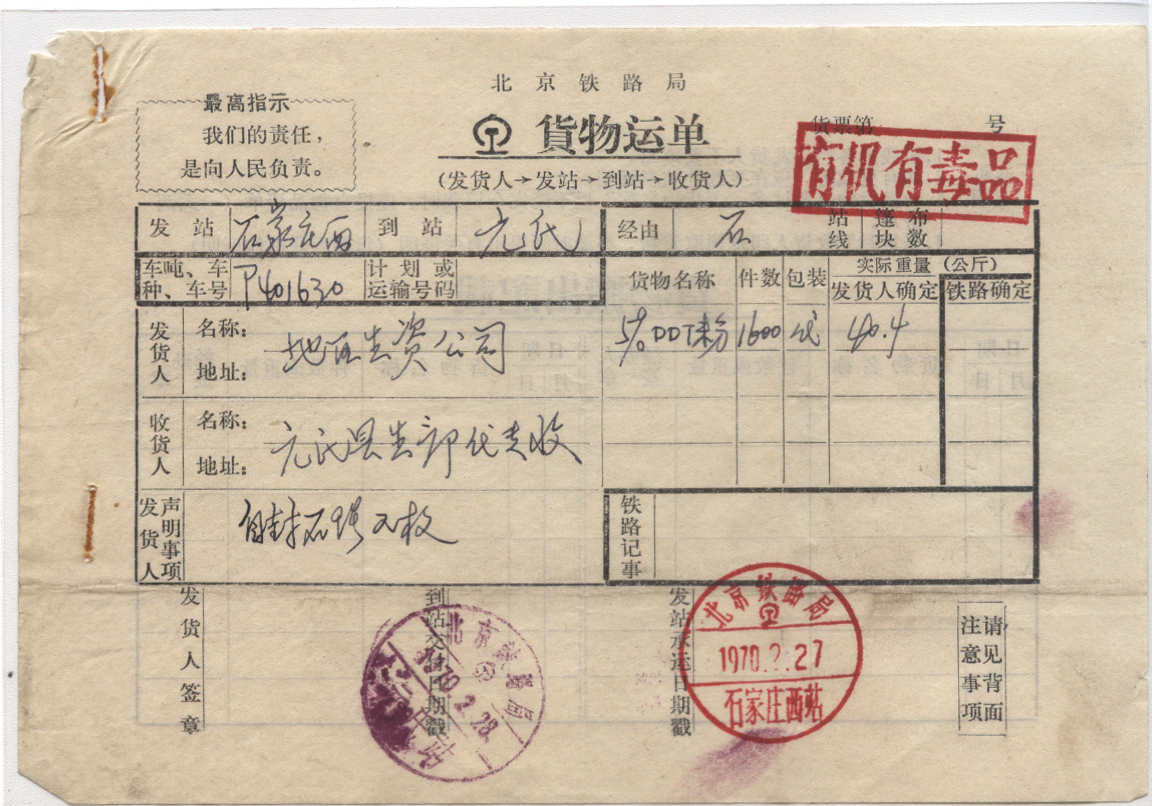 北京铁路局
最高指示
我们的责任，
是向人民负责。
貨物运单
(发货人→发站→到站→收货人)
货票第 号
有机有毒品
发站 石家庄西 到站 元氏 经由 石 站线 篷布块数
车种、车吨、车号 P401630 计划或运输号码
货物名称 件数 包装 实际重量（公斤）
发货人确定 铁路确定
发货人 名称： 地区生资公司
地址：
5% DDT粉 1600 代 40.4
收货人 名称： 元氏县生部代支收
地址：
发货人声明事项
铁路记事
发货人签章
到站交付日期戳
发站承运日期戳
请见背面注意事项
北京铁路局
1970.2.28
站
北京铁路局
1970.2.27
石家庄西站